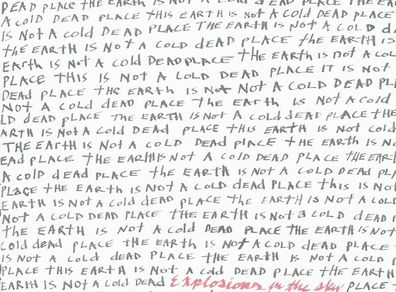 DEAD PLACE THE EARTH IS NOT A COLD DEAD PLACE THE EA
A COLD DEAD PLACE THIS EARTH IS NOT A COLD DEAD PLACE
IS NOT A COLD DEAD PLACE THE EARTH IS NOT A COLD D
THE EARTH IS NOT A COLD DEAD PLACE THE EARTH IS
EARTH IS NOT A COLD DEAD PLACE THE EARTH IS NOT A COL
PLACE THIS IS NOT A COLD DEAD PLACE IT IS NOT
DEAD PLACE THE EARTH IS NOT A COLD DEAD PL
NOT A COLD DEAD PLACE THE EARTH IS NOT A COLD
LD DEAD PLACE THE EARTH IS NOT A COLD DEAD PLACE THE
ARTH IS NOT A COLD DEAD PLACE THIS EARTH IS NOT COLD
THE EARTH IS NOT A COLD DEAD PLACE THE EARTH IS NO
EAD PLACE THE EARTH IS NOT A COLD DEAD PLACE THE EART
A COLD DEAD PLACE THE EARTH IS NOT A COLD DEAD PL
PLACE THE EARTH IS NOT A COLD DEAD PLACE THIS IS NOT
EARTH IS NOT A COLD DEAD PLACE THE EARTH IS NOT A COL
NOT A COLD DEAD PLACE THE EARTH IS NOT A COLD DEAD
THE EARTH IS NOT A COLD DEAD PLACE THE EARTH IS NOT
COLD DEAD PLACE THE EARTH IS NOT A COLD DEAD PLACE
IS NOT A COLD DEAD PLACE THE EARTH IS NOT A COLD
PLACE THIS EARTH IS NOT A COLD DEAD PLACE THE EARTH
EARTH IS NOT A COLD DEAD Explosions in the sky PLACE T